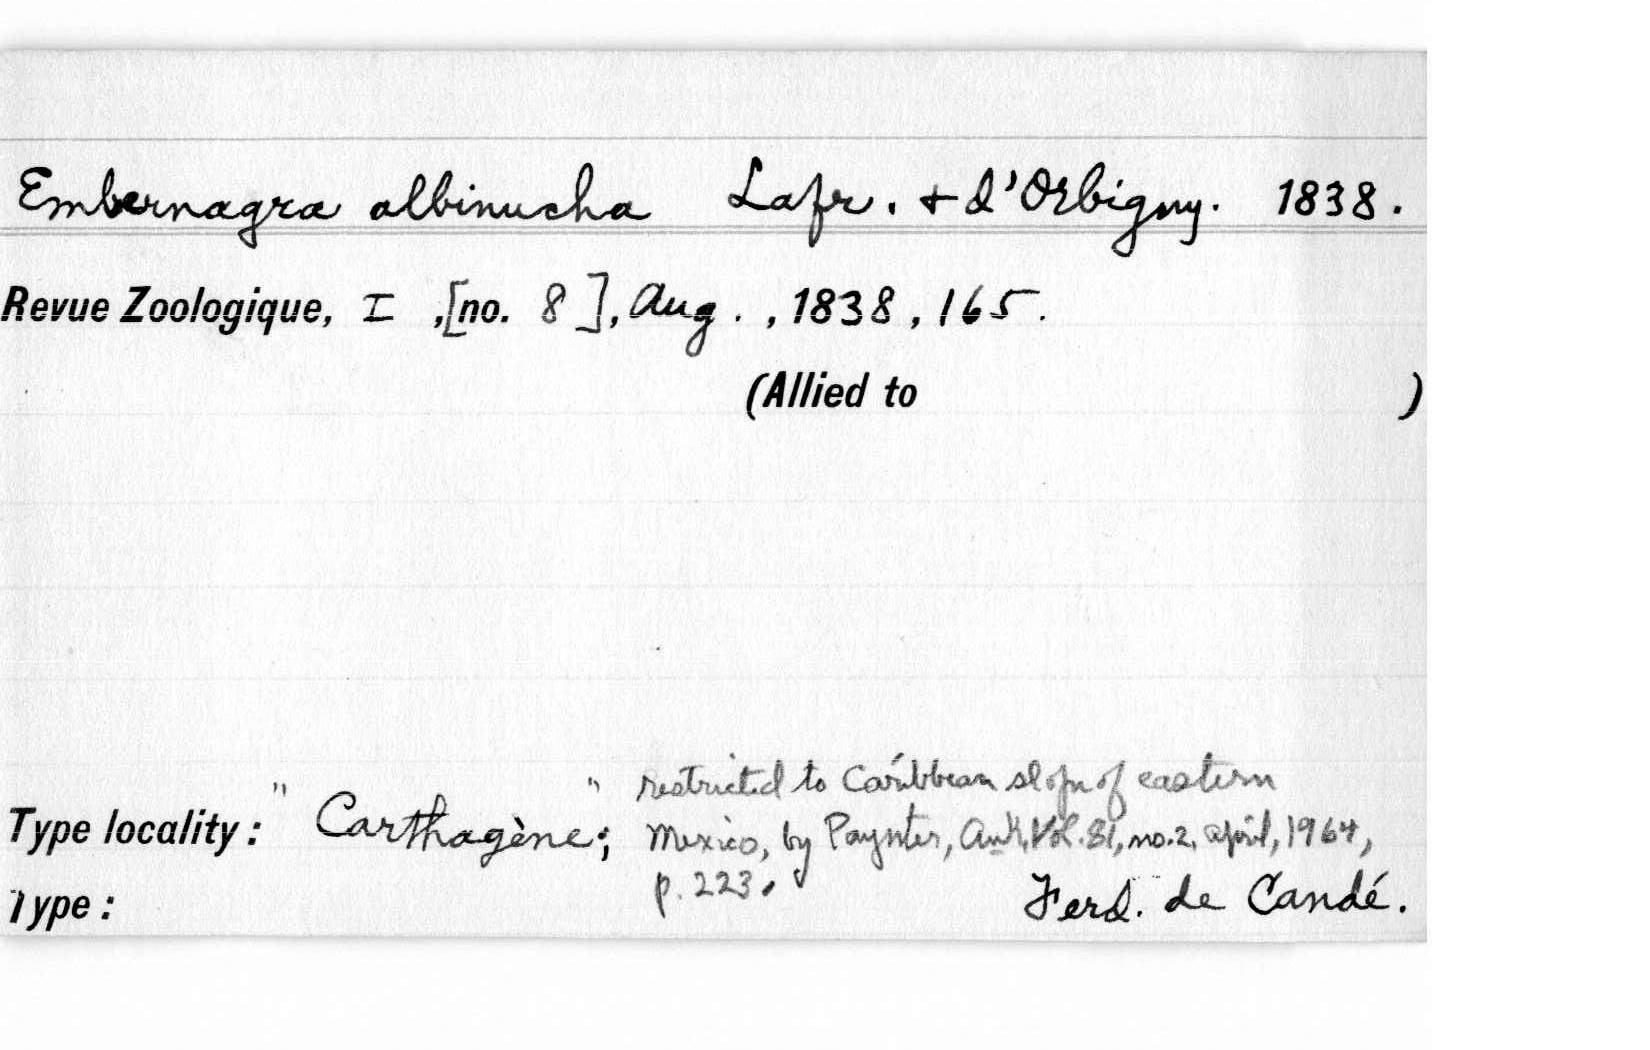 Embernagra albinucha Lafr. + d'Orbigny. 1838.
Revue Zoologique, I ,[no. 8], Aug. , 1838, 165.
(Allied to )
Type locality: "Carthagène"; restricted to Caribbean slope of eastern
Mexico, by Paynter, Auk, Vol. 81, no. 2, april, 1964,
p. 223.
Type: Ferd. de Candé.